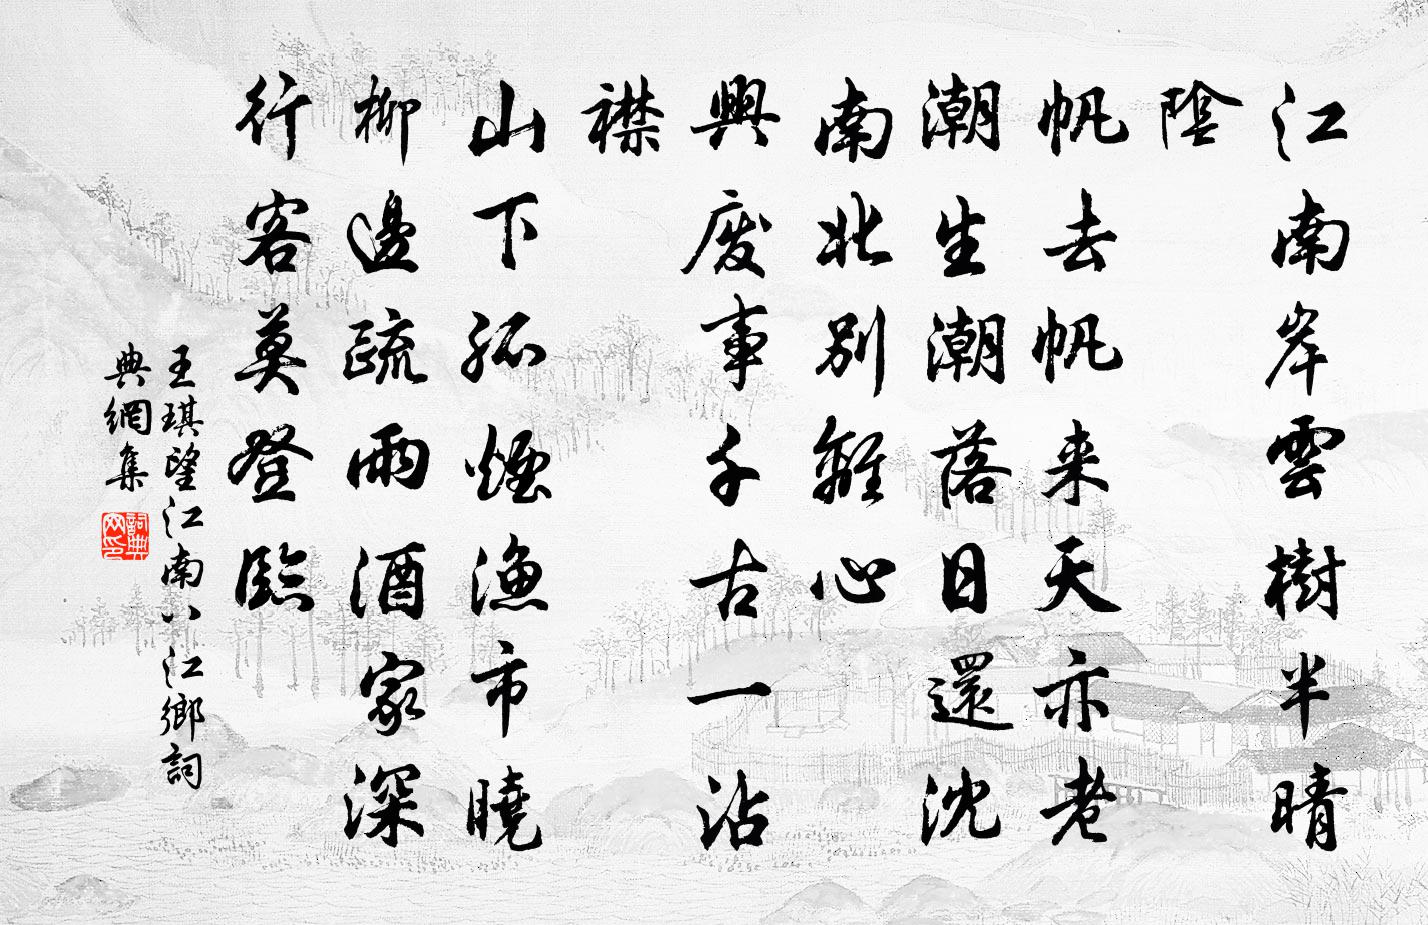 江南岸雲樹半晴
陰
帆去帆来天亦老
潮生潮落日還沈
南北別離心
興废事千古一沾
襟
山下孤煙漁市曉
柳邊疏雨酒家深
行客莫登臨
王琪望江南八江鄉詞
典網集
詞典
网印